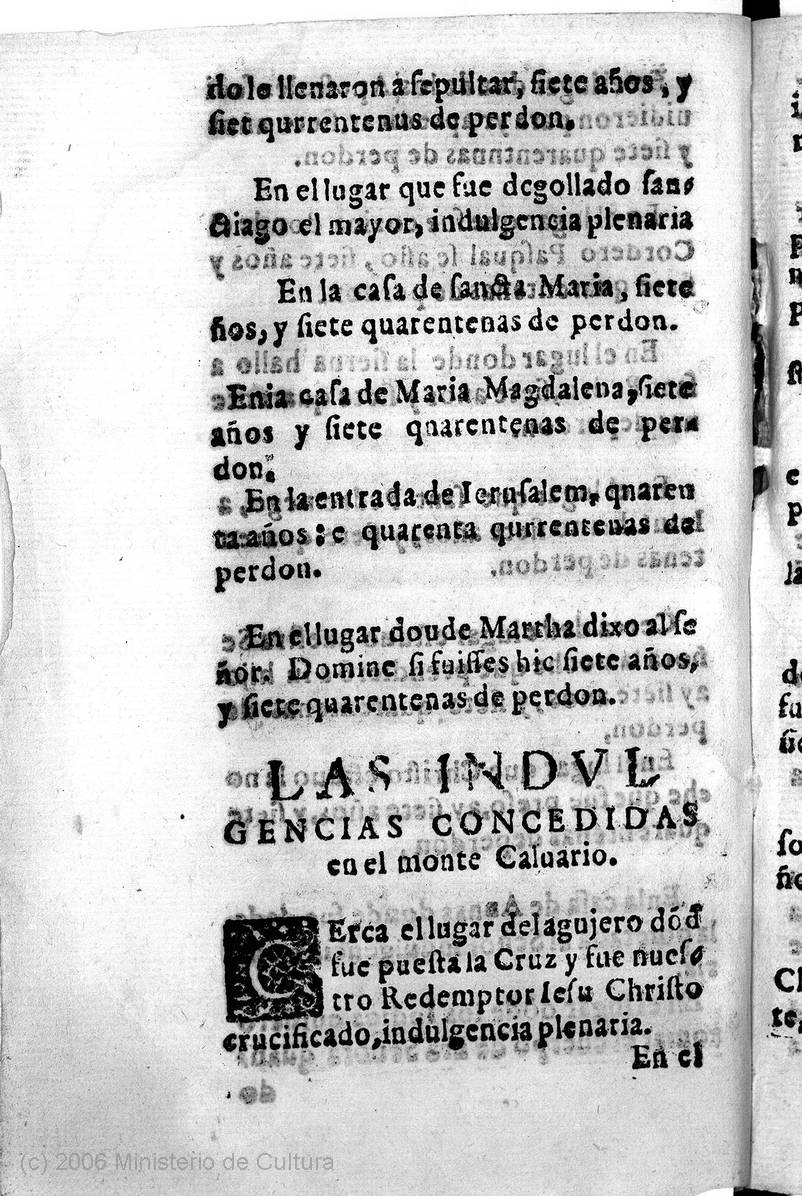 do lo llenaron a ſepultar, ſiete años, y
ſiet qurrentenus de perdon.
En el lugar que fue degollado ſan-
ctiago el mayor, indulgencia plenaria
En la caſa de ſancta Maria, ſiete
ños, y ſiete quarentenas de perdon.
Enia caſa de Maria Magdalena, ſiete
años y ſiete qnarentenas de per-
don.
En la entrada de Ieruſalem, qnaren
ta años: e quarenta qurrentenas de
perdon.
En el lugar doude Martha dixo al ſe
ñor. Domine ſi fuiſſes hic ſiete años,
y ſiete quarentenas de perdon.
LAS INDVL
GENCIAS CONCEDIDAS
en el monte Caluario.
CErca el lugar del agujero dõd
fue pueſta la Cruz y fue nueſ-
tro Redemptor Ieſu Chriſto
crucificado, indulgencia plenaria.
En el
(c) 2006 Ministerio de Cultura